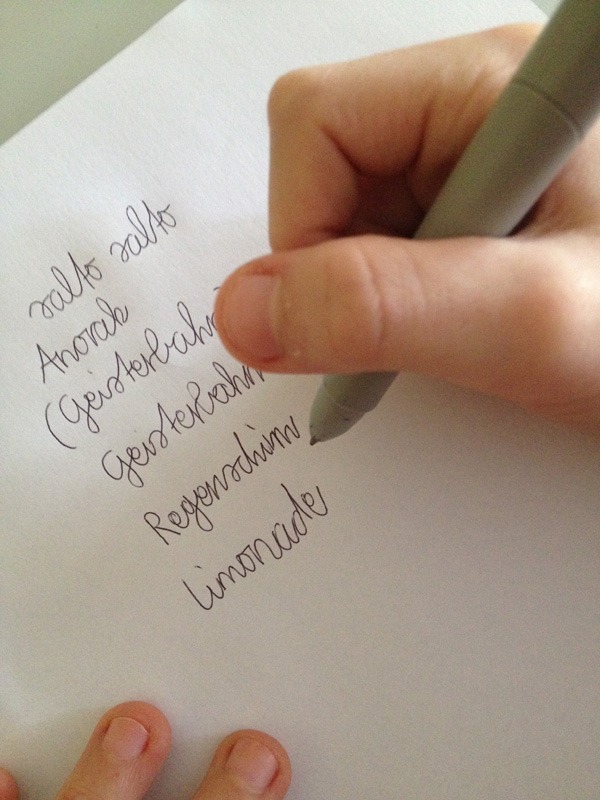 salto salto
Anorak
(Geisterbahn
Geisterbahn
Regenschirm
Limonade